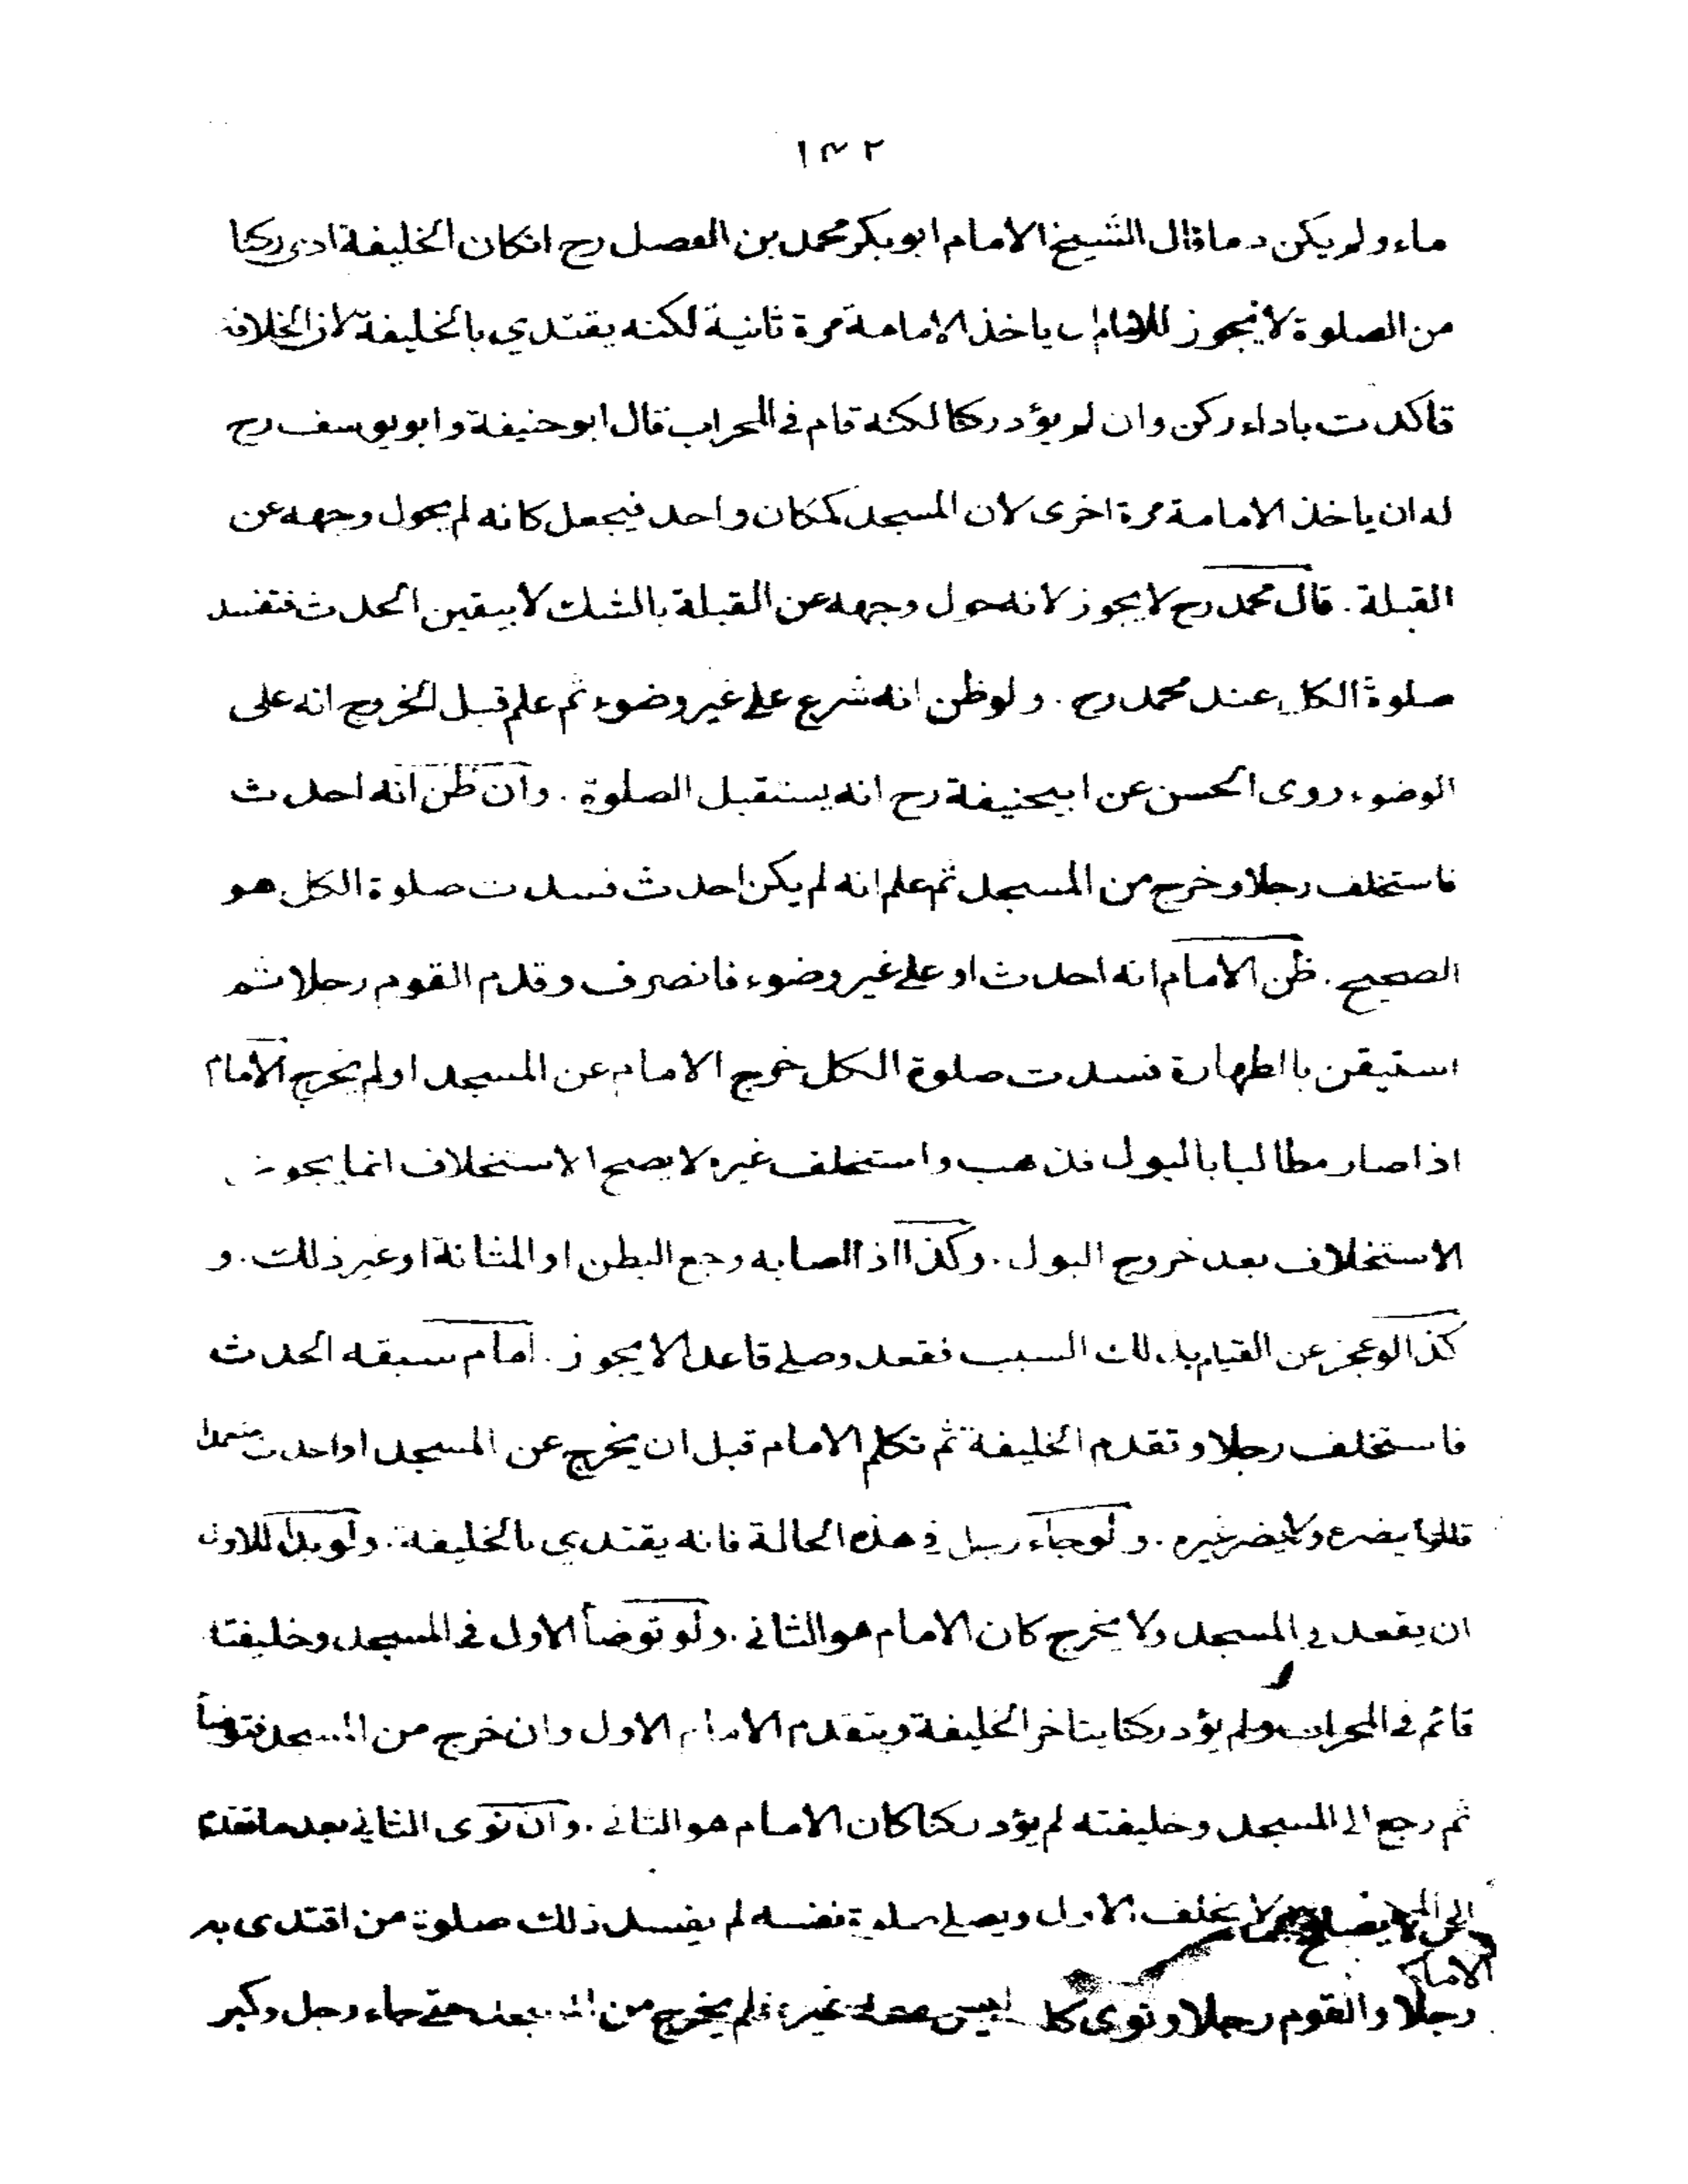 ١٣٢
ماء ولم يكن دما قال الشيخ الامام ابو بكر محمد بن الفضل رح انكان الخليفة ادى ركنا
من الصلوة لا يجوز للامام ان ياخذ الامامة مرة ثانية لكنه يقتدي بالخليفة لان الخلافة
تاكدت باداء ركن وان لم يؤد ركنا لكنه قام في المحراب قال ابو حنيفة وابو يوسف رح
له ان ياخذ الامامة مرة اخرى لان المسجد كمكان واحد فيجعل كانه لم يحول وجهه عن
القبلة . قال محمد رح لا يجوز لانه حول وجهه عن القبلة بالشك لا بيقين الحدث فتفسد
صلوة الكل عند محمد رح . ولو ظن انه شرع على غير وضوء ثم علم قبل الخروج انه على
الوضوء روى الحسن عن ابيحنيفة رح انه يستقبل الصلوة . وان ظن انه احدث
فاستخلف رجلا وخرج من المسجد ثم علم انه لم يكن احدث فسدت صلوة الكل هو
الصحيح . ظن الامام انه احدث او على غير وضوء فانصرف وقدم القوم رجلا ثم
استيقن بالطهارة فسدت صلوة الكل خرج الامام عن المسجد اولم يخرج الامام
اذا صار مطالبا بالبول فذهب واستخلف غيره لا يصح الاستخلاف انما يجوز
الاستخلاف بعد خروج البول . وكذا اذا اصابه وجع البطن او المثانة او غير ذلك . و
كذا لو عجز عن القيام بذلك السبب فقعد وصلى قاعدا لا يجوز . امام سبقه الحدث
فاستخلف رجلا وتقدم الخليفة ثم تكلم الامام قبل ان يخرج عن المسجد او احدث متعمدا
قالوا يضره ولا يضر غيره . ولو جاء رجل في هذه الحالة فانه يقتدي بالخليفة . ولو بدا للاول
ان يقعد في المسجد ولا يخرج كان الامام هو الثاني . ولو توضأ الاول في المسجد وخليفته
قائم في المحراب ولم يؤد ركنا يتاخر الخليفة ويتقدم الامام الاول وان خرج من المسجد فتوضأ
ثم رجع الى المسجد وخليفته لم يؤد ركنا كان الامام هو الثاني . وان نوى الثاني بعد ما تقدم
الى ان لا يخلف الاول ويصلي صلوة نفسه لم يفسد ذلك صلوة من اقتدى به
الامام
رجلا والقوم رجلا ونوى كل ليس معه غيره فلم يخرج من المسجد حتى جاء رجل وكبر